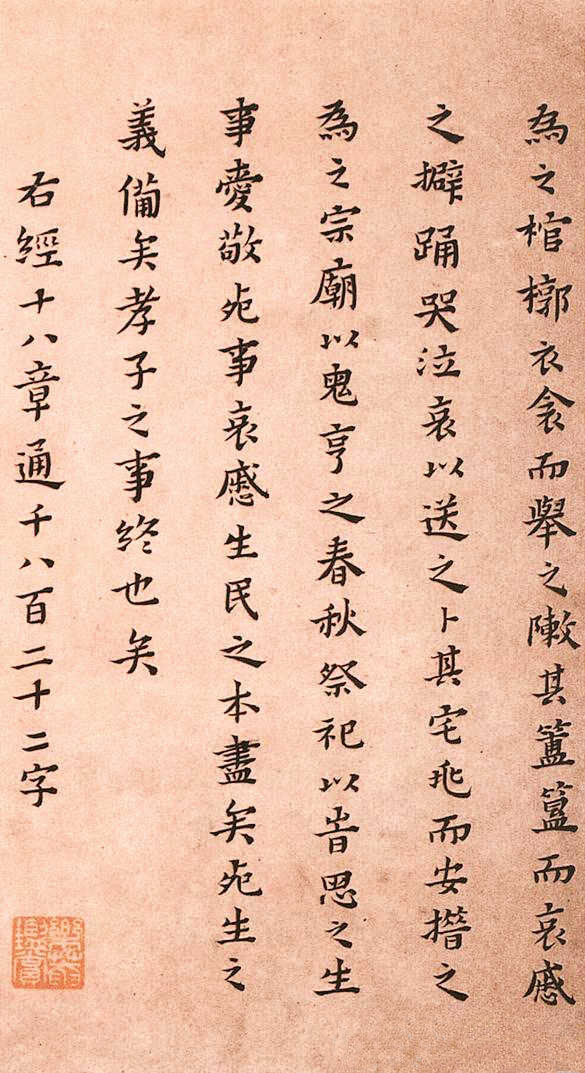 為之棺槨衣衾而舉之陳其簠簋而哀慼
之擗踊哭泣哀以送之卜其宅兆而安措之
為之宗廟以鬼亨之春秋祭祀以旹思之生
事愛敬死事哀慼生民之本盡矣死生之
義備矣孝子之事終也矣
右經十八章通千八百二十二字